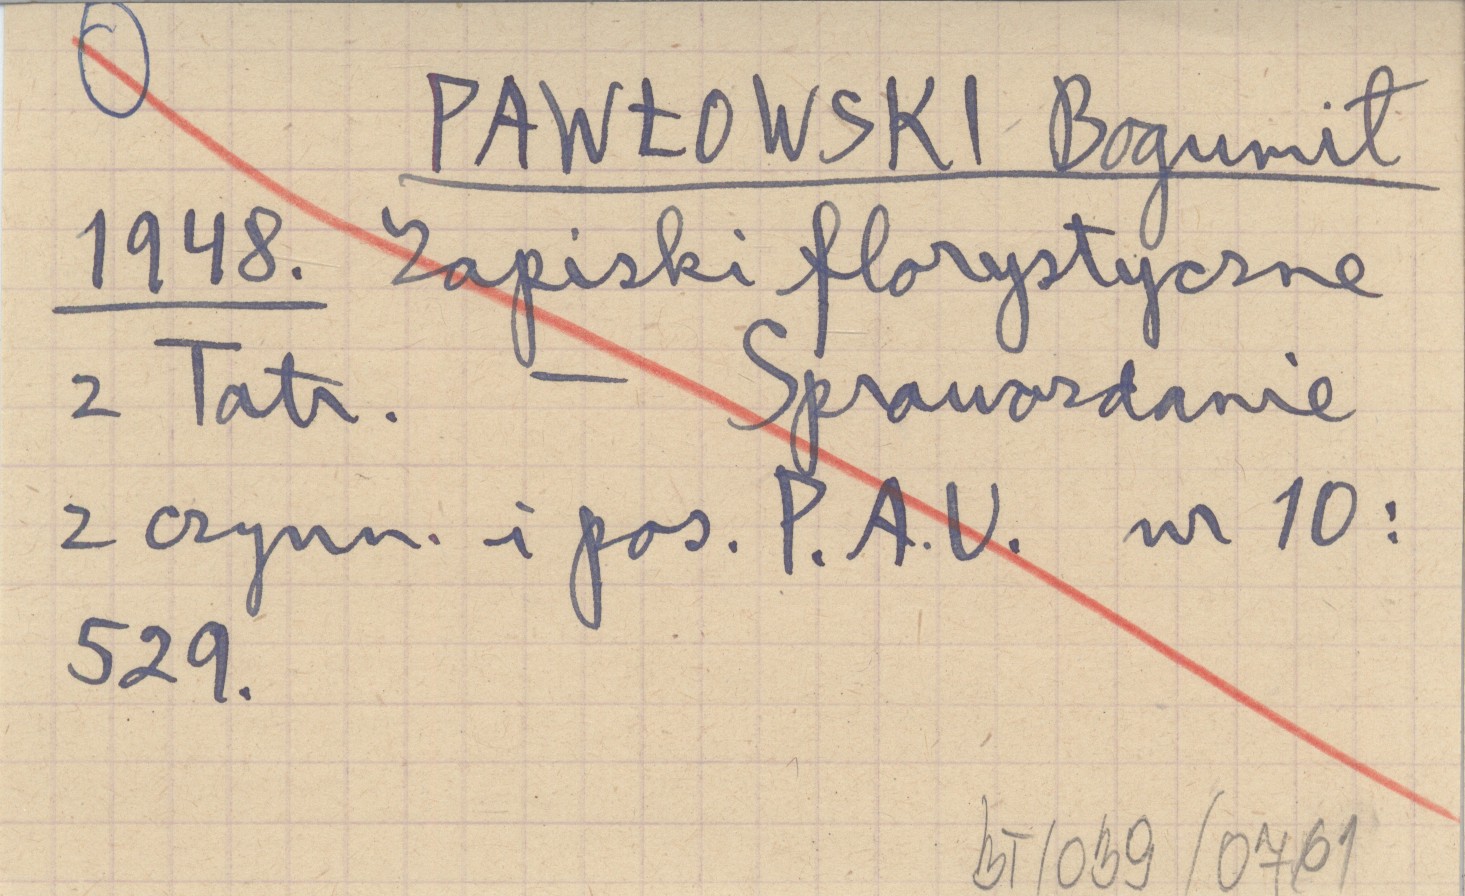 PAWŁOWSKI Bogumił
1948. Zapiski florystyczne
z Tatr. — Sprawozdanie
z czynn. i pos. P.A.U. nr 10:
529.